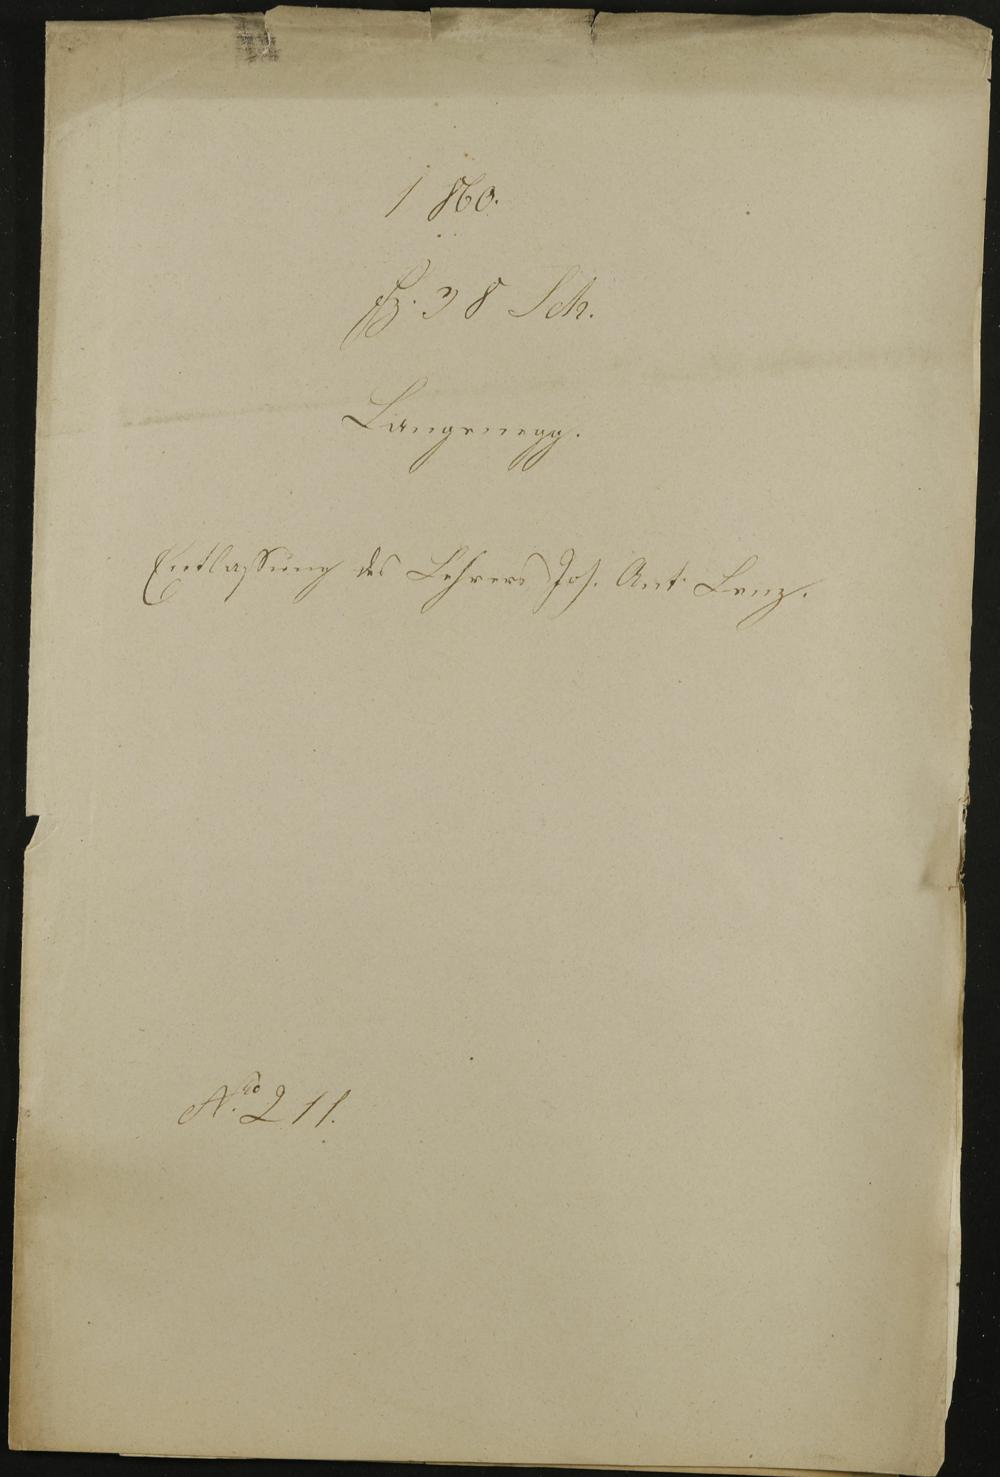 1860.
Fz. 38 Sch.
Langenegg.
Entlassung des Lehrers Joh. Ant. Lenz.
Nro. 211.